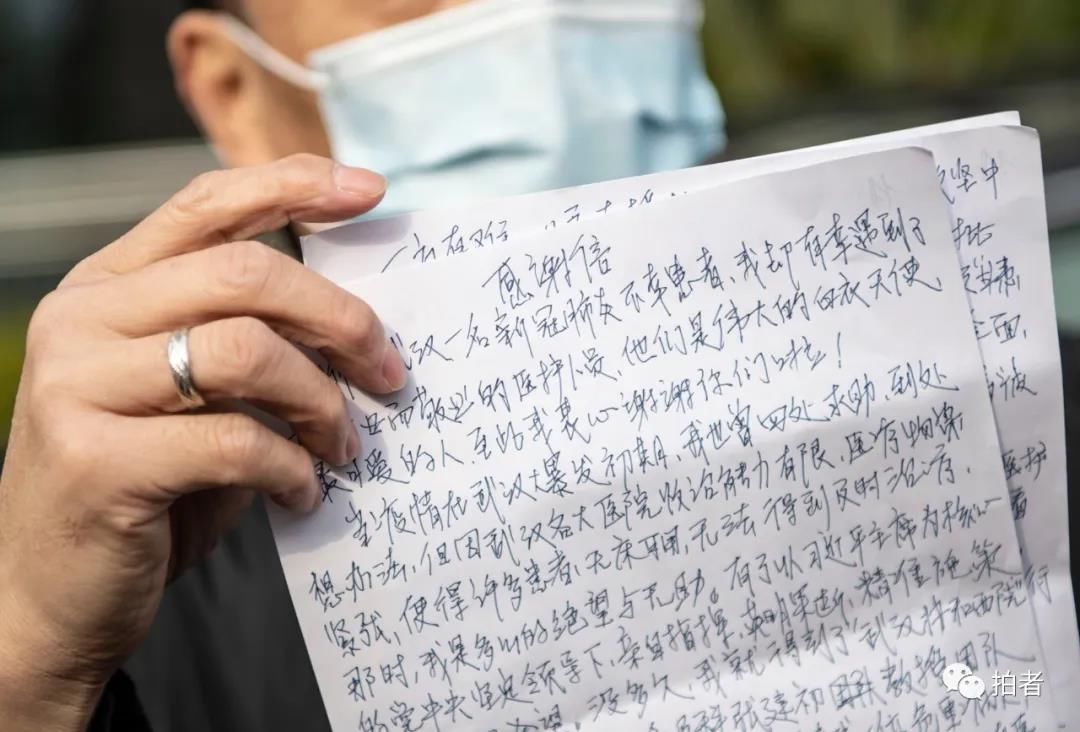 感谢信
一名新冠肺炎不幸患者，我却有幸遇到了
而敬业的医护人员，他们是伟大的白衣天使
最可爱的人，至始我衷心谢谢你们啦！
当疫情在武汉大暴发初期，我也曾四处求助，到处
想办法，但因武汉各大医院收治能力有限，医疗物资
紧张，使得许多患者，无床可用，无法得到及时治疗，
那时，我是多么的绝望与无助。有了以习近平主席为核心
的党中央坚定领导下，亲自指挥，英明果断，精准施策
没多久，我就得到了武汉协和西院行
张建初 教授团队
坚中
批
全面，
被
医护
者
拍者